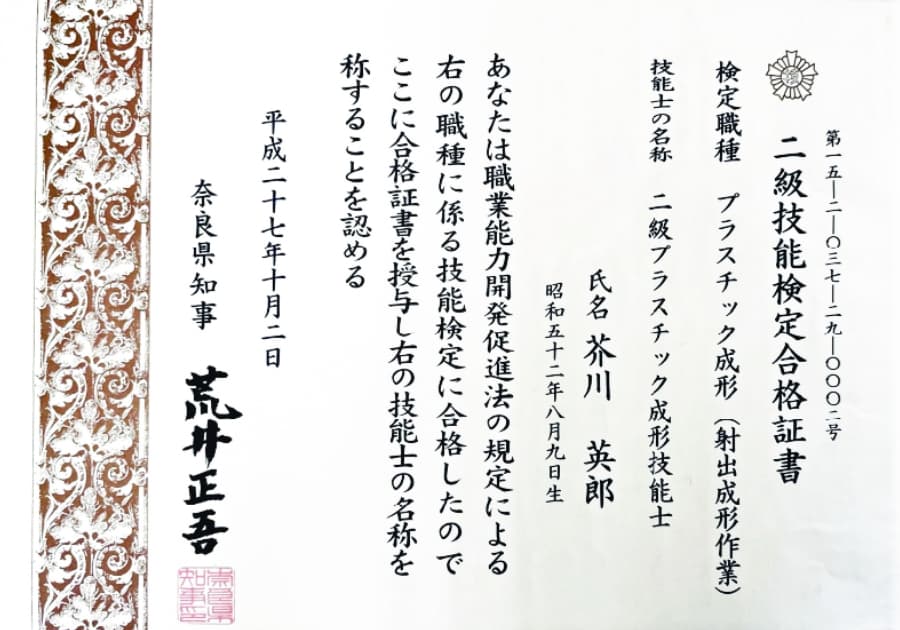 第一五―二―〇三七―二九―〇〇〇二号
二級技能検定合格証書
検定職種 プラスチック成形(射出成形作業)
技能士の名称 二級プラスチック成形技能士
氏名 芥川 英郎
昭和五十二年八月九日生
あなたは職業能力開発促進法の規定による
右の職種に係る技能検定に合格したので
ここに合格証書を授与し右の技能士の名称を
称することを認める
平成二十七年十月二日
奈良県知事 荒井正吾
奈良県知事印